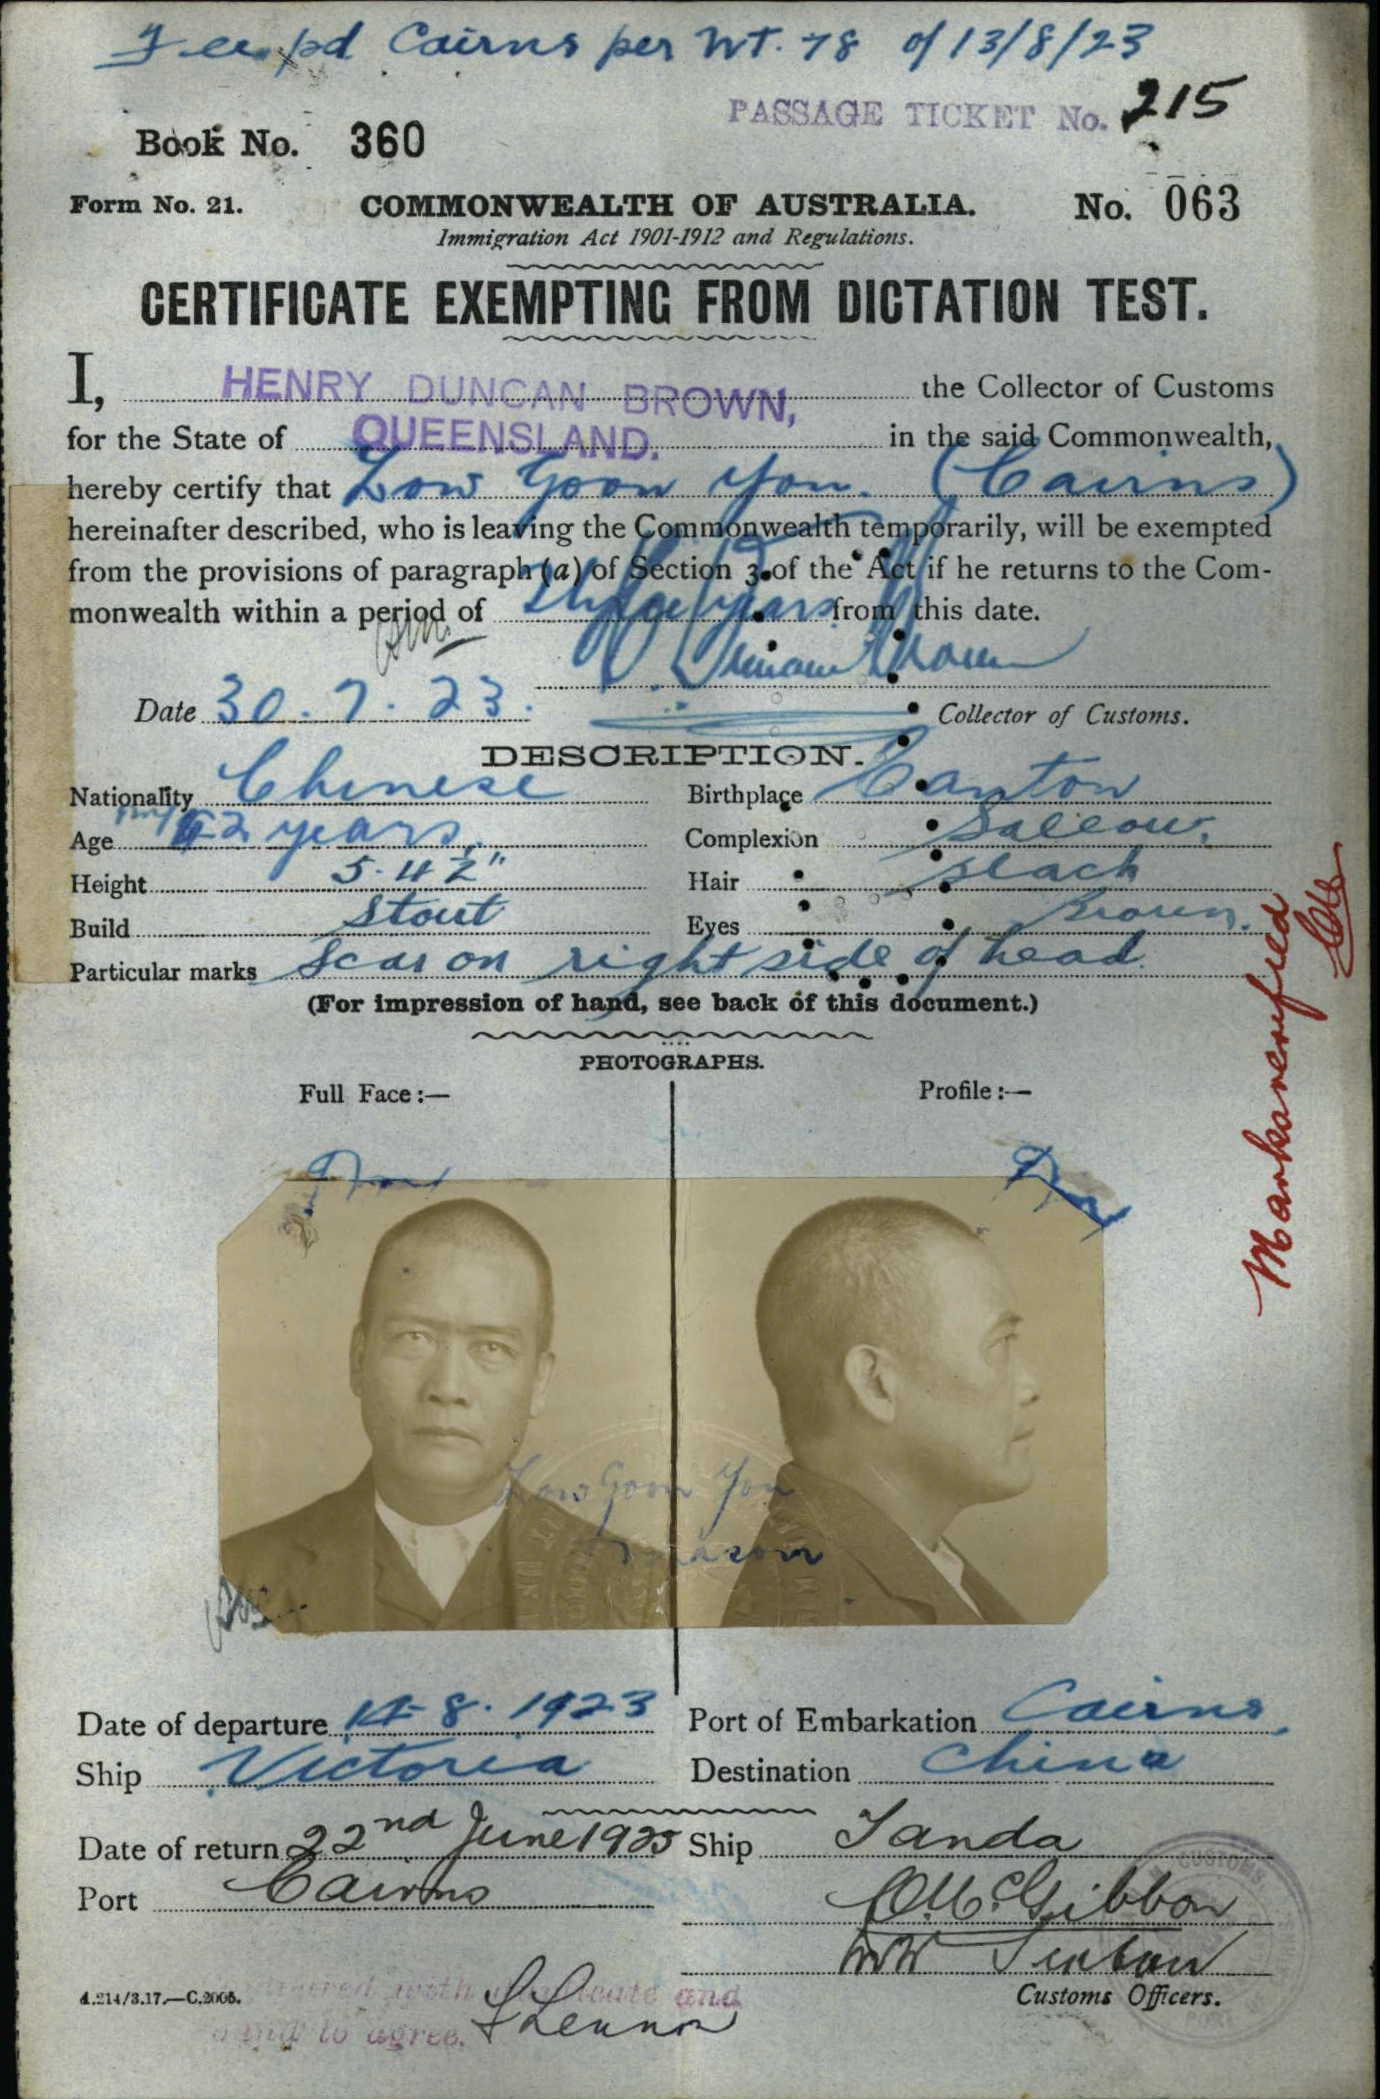 Fee pd Cairns per WT. 78 of 13/8/23
PASSAGE TICKET No. 215
Book No. 360
Form No. 21. COMMONWEALTH OF AUSTRALIA. No. 063
Immigration Act 1901-1912 and Regulations.
CERTIFICATE EXEMPTING FROM DICTATION TEST.
I, HENRY DUNCAN BROWN, the Collector of Customs
for the State of QUEENSLAND. in the said Commonwealth,
hereby certify that Low Goon You. (Cairns)
hereinafter described, who is leaving the Commonwealth temporarily, will be exempted
from the provisions of paragraph (a) of Section 3 of the Act if he returns to the Com-
monwealth within a period of Three years from this date.
H. Duncan Brown
Date 30.7.23. Collector of Customs.
DESCRIPTION.
Nationality Chinese Birthplace Canton
Age 52 years. Complexion Sallow.
Height 5.4½" Hair Black
Build Stout Eyes Brown.
Particular marks Scar on right side of head.
(For impression of hand, see back of this document.)
PHOTOGRAPHS.
Full Face:— Profile:—
Marks verified
Low Goon You
Date of departure 14-8.1923 Port of Embarkation Cairns.
Ship Victoria Destination China
Date of return 22nd June 1925 Ship Tanda
Port Cairns
CUSTOMS
Customs Officers.
with and
to agree.